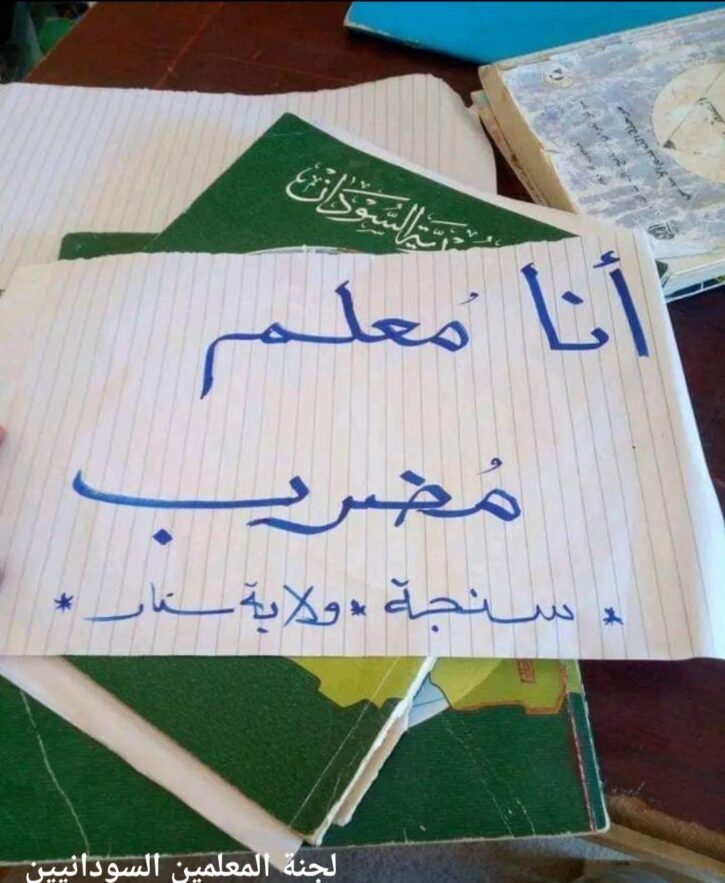 السودان
أنا مُعلم
مُضرب
* سنجة * ولاية سنار *
لجنة المعلمين السودانيين